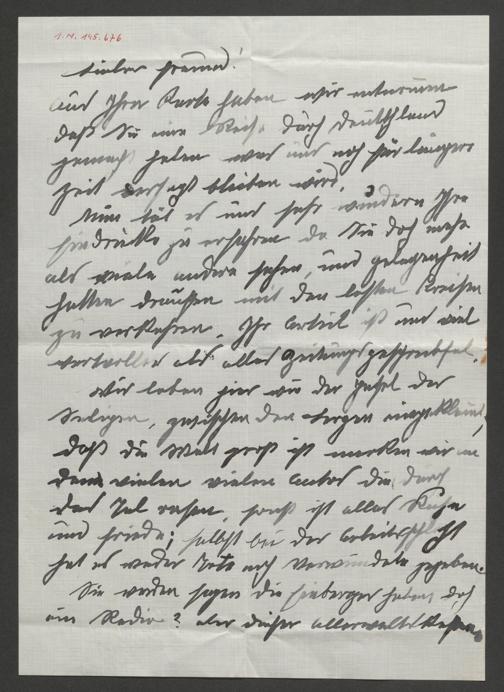 I.N. 145.676
Lieber Freund!
Aus Ihrer Karte haben wir entnommen
daß Sie eine Reise durch Deutschland
gemacht haben was uns noch für längere
Zeit versagt bleiben wird.
Nun tät es uns sehr wundern Ihre
Eindrücke zu erfahren da Sie doch mehr
als viele andere sehen, und gelegenheit
hatten draußen mit den besten Kreisen
zu verkehren. Ihr Urteil ist uns viel
wertvoller als alles Zeitungsgeschreibsel.
Wir leben hier wie der Insel der
Seligen, zwischen den Bergen eingeklemmt,
daß die Welt groß ist merken wir an
den vielen vielen Autos die durch
das Tal rasen, sonst ist alles Ruhe
und Friede; selbst bei der Arbeitsschlacht
hat es weder Tote noch Verwundete gegeben.
Sie werden sagen die haben doch
ein Radio? aber dieser